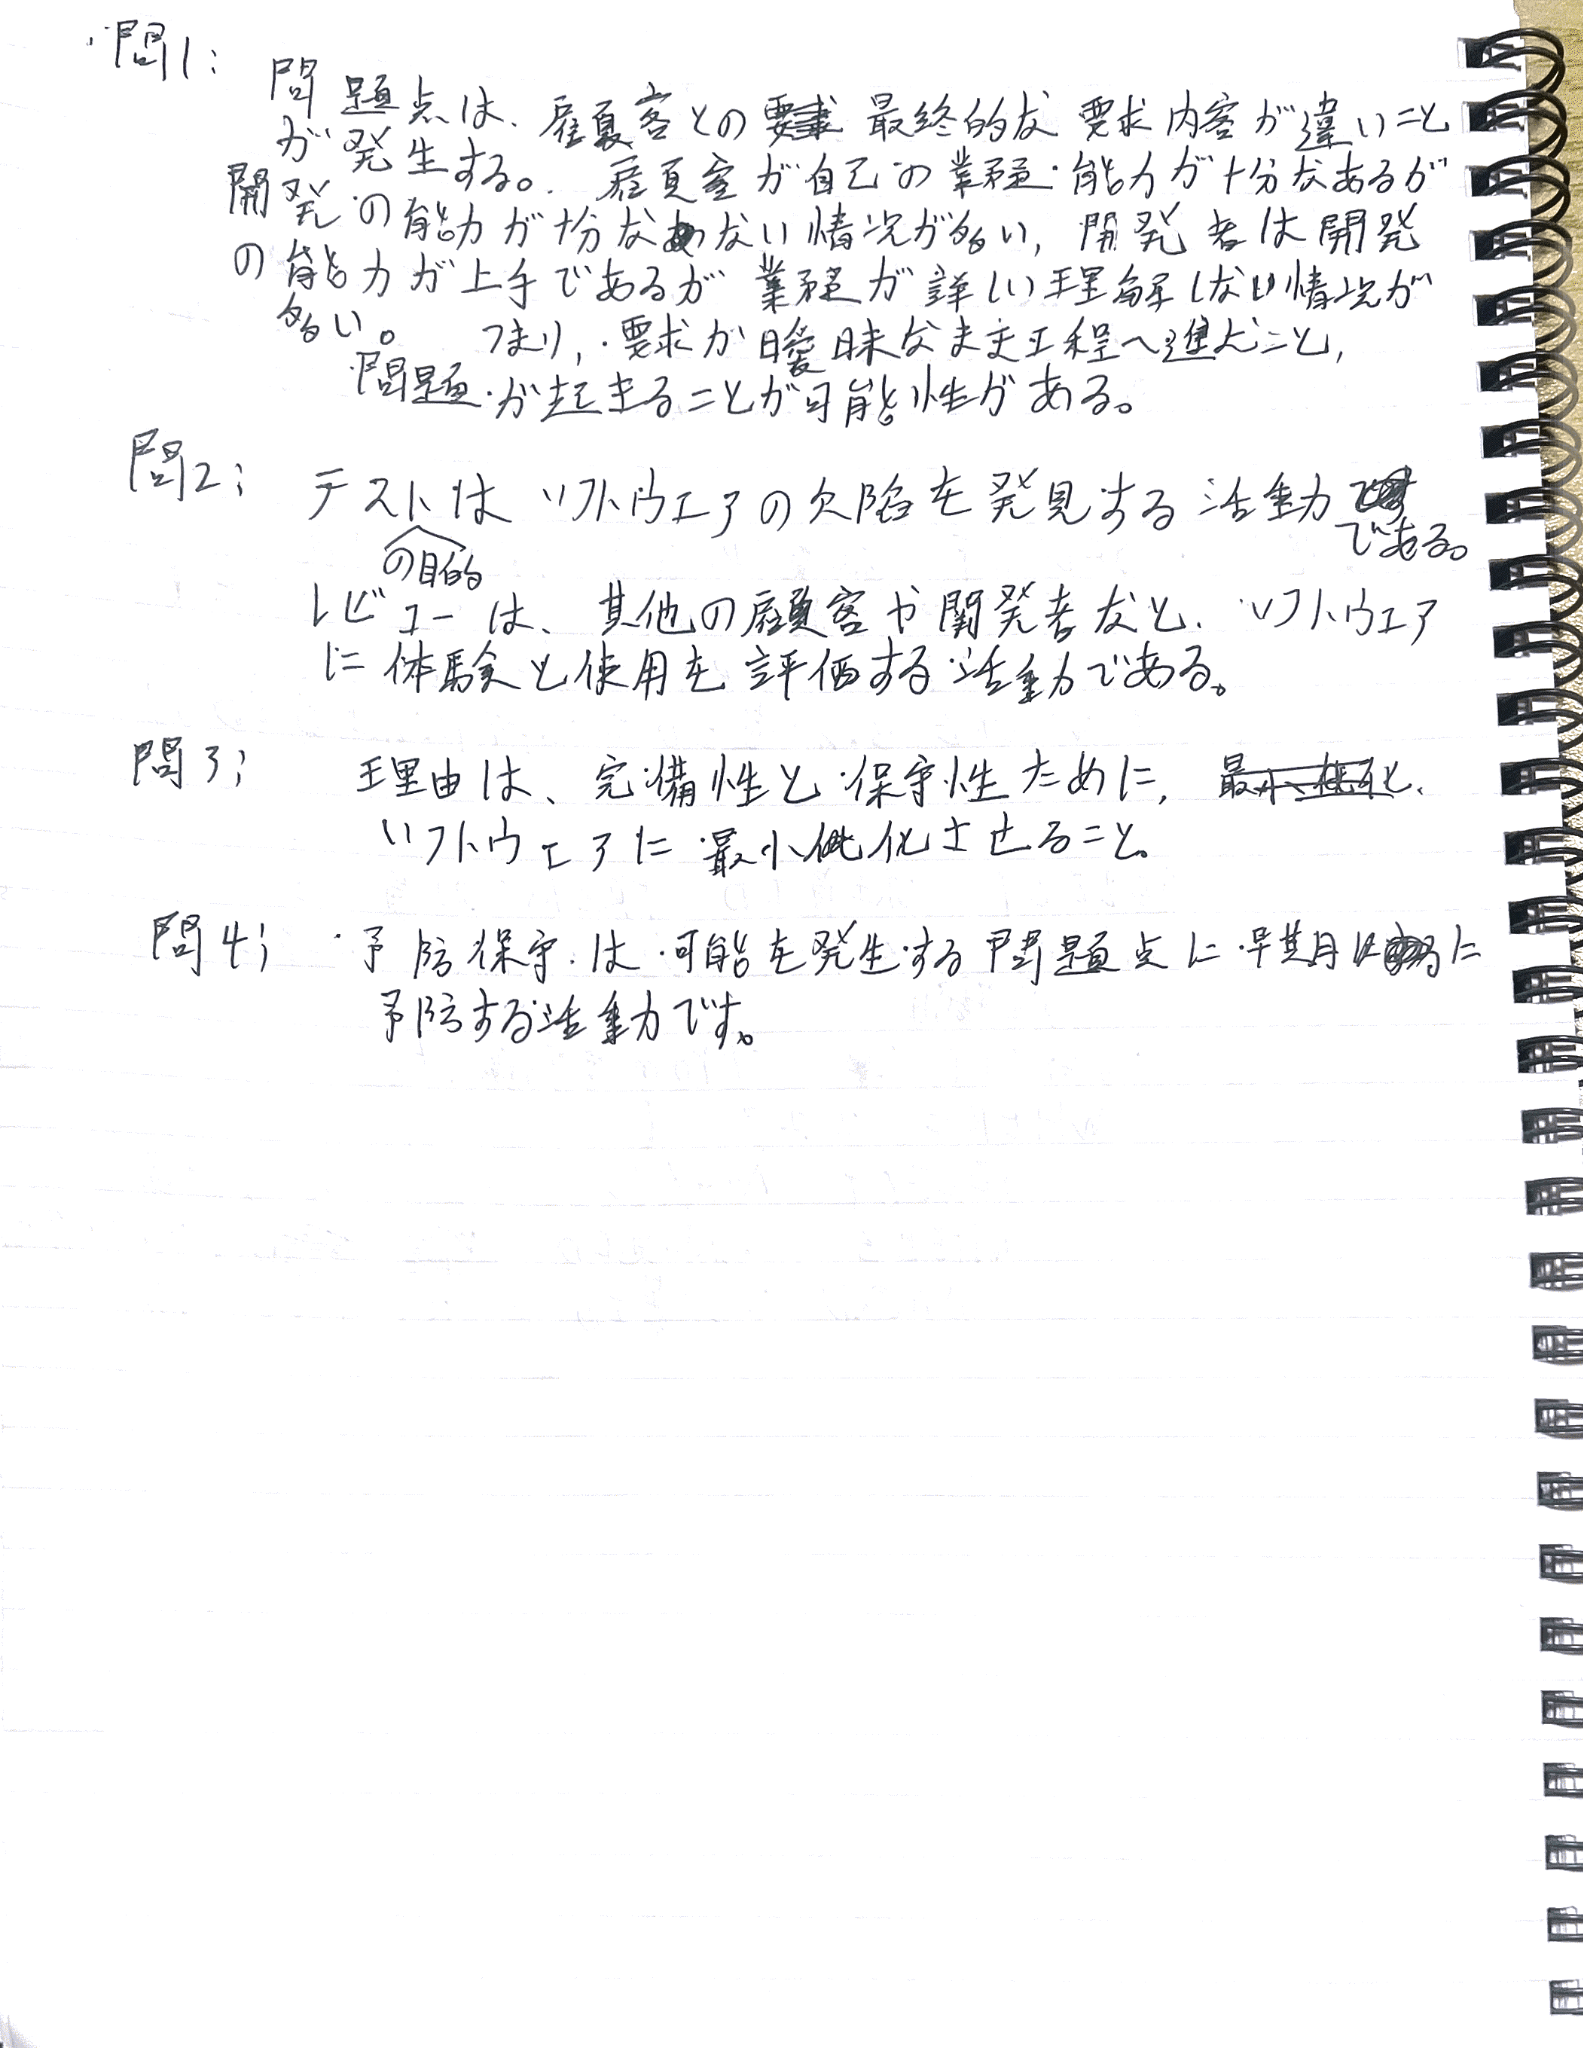 問1:
問題点は、顧客との最終的な要求内容が違いこと
が発生する。顧客が自己の業務能力が十分なあるが
開発の能力が十分なない情況が多い, 開発者は開発
の能力が上手であるが業務が詳しい理解しない情況が
多い。 つまり, 要求が曖昧なまま工程へ進んこと,
問題が起きることが可能性がある。
問2; テストは ソフトウェアの欠陥を発見する活動
の目的 である。
レビューは、其他の顧客や開発者など、ソフトウェア
に体験と使用を評価する活動である。
問3; 理由は、完備性と保守性ために,
ソフトウェアに最小化させること。
問4; 予防保守は可能を発生する問題点に早期に
予防する活動です。